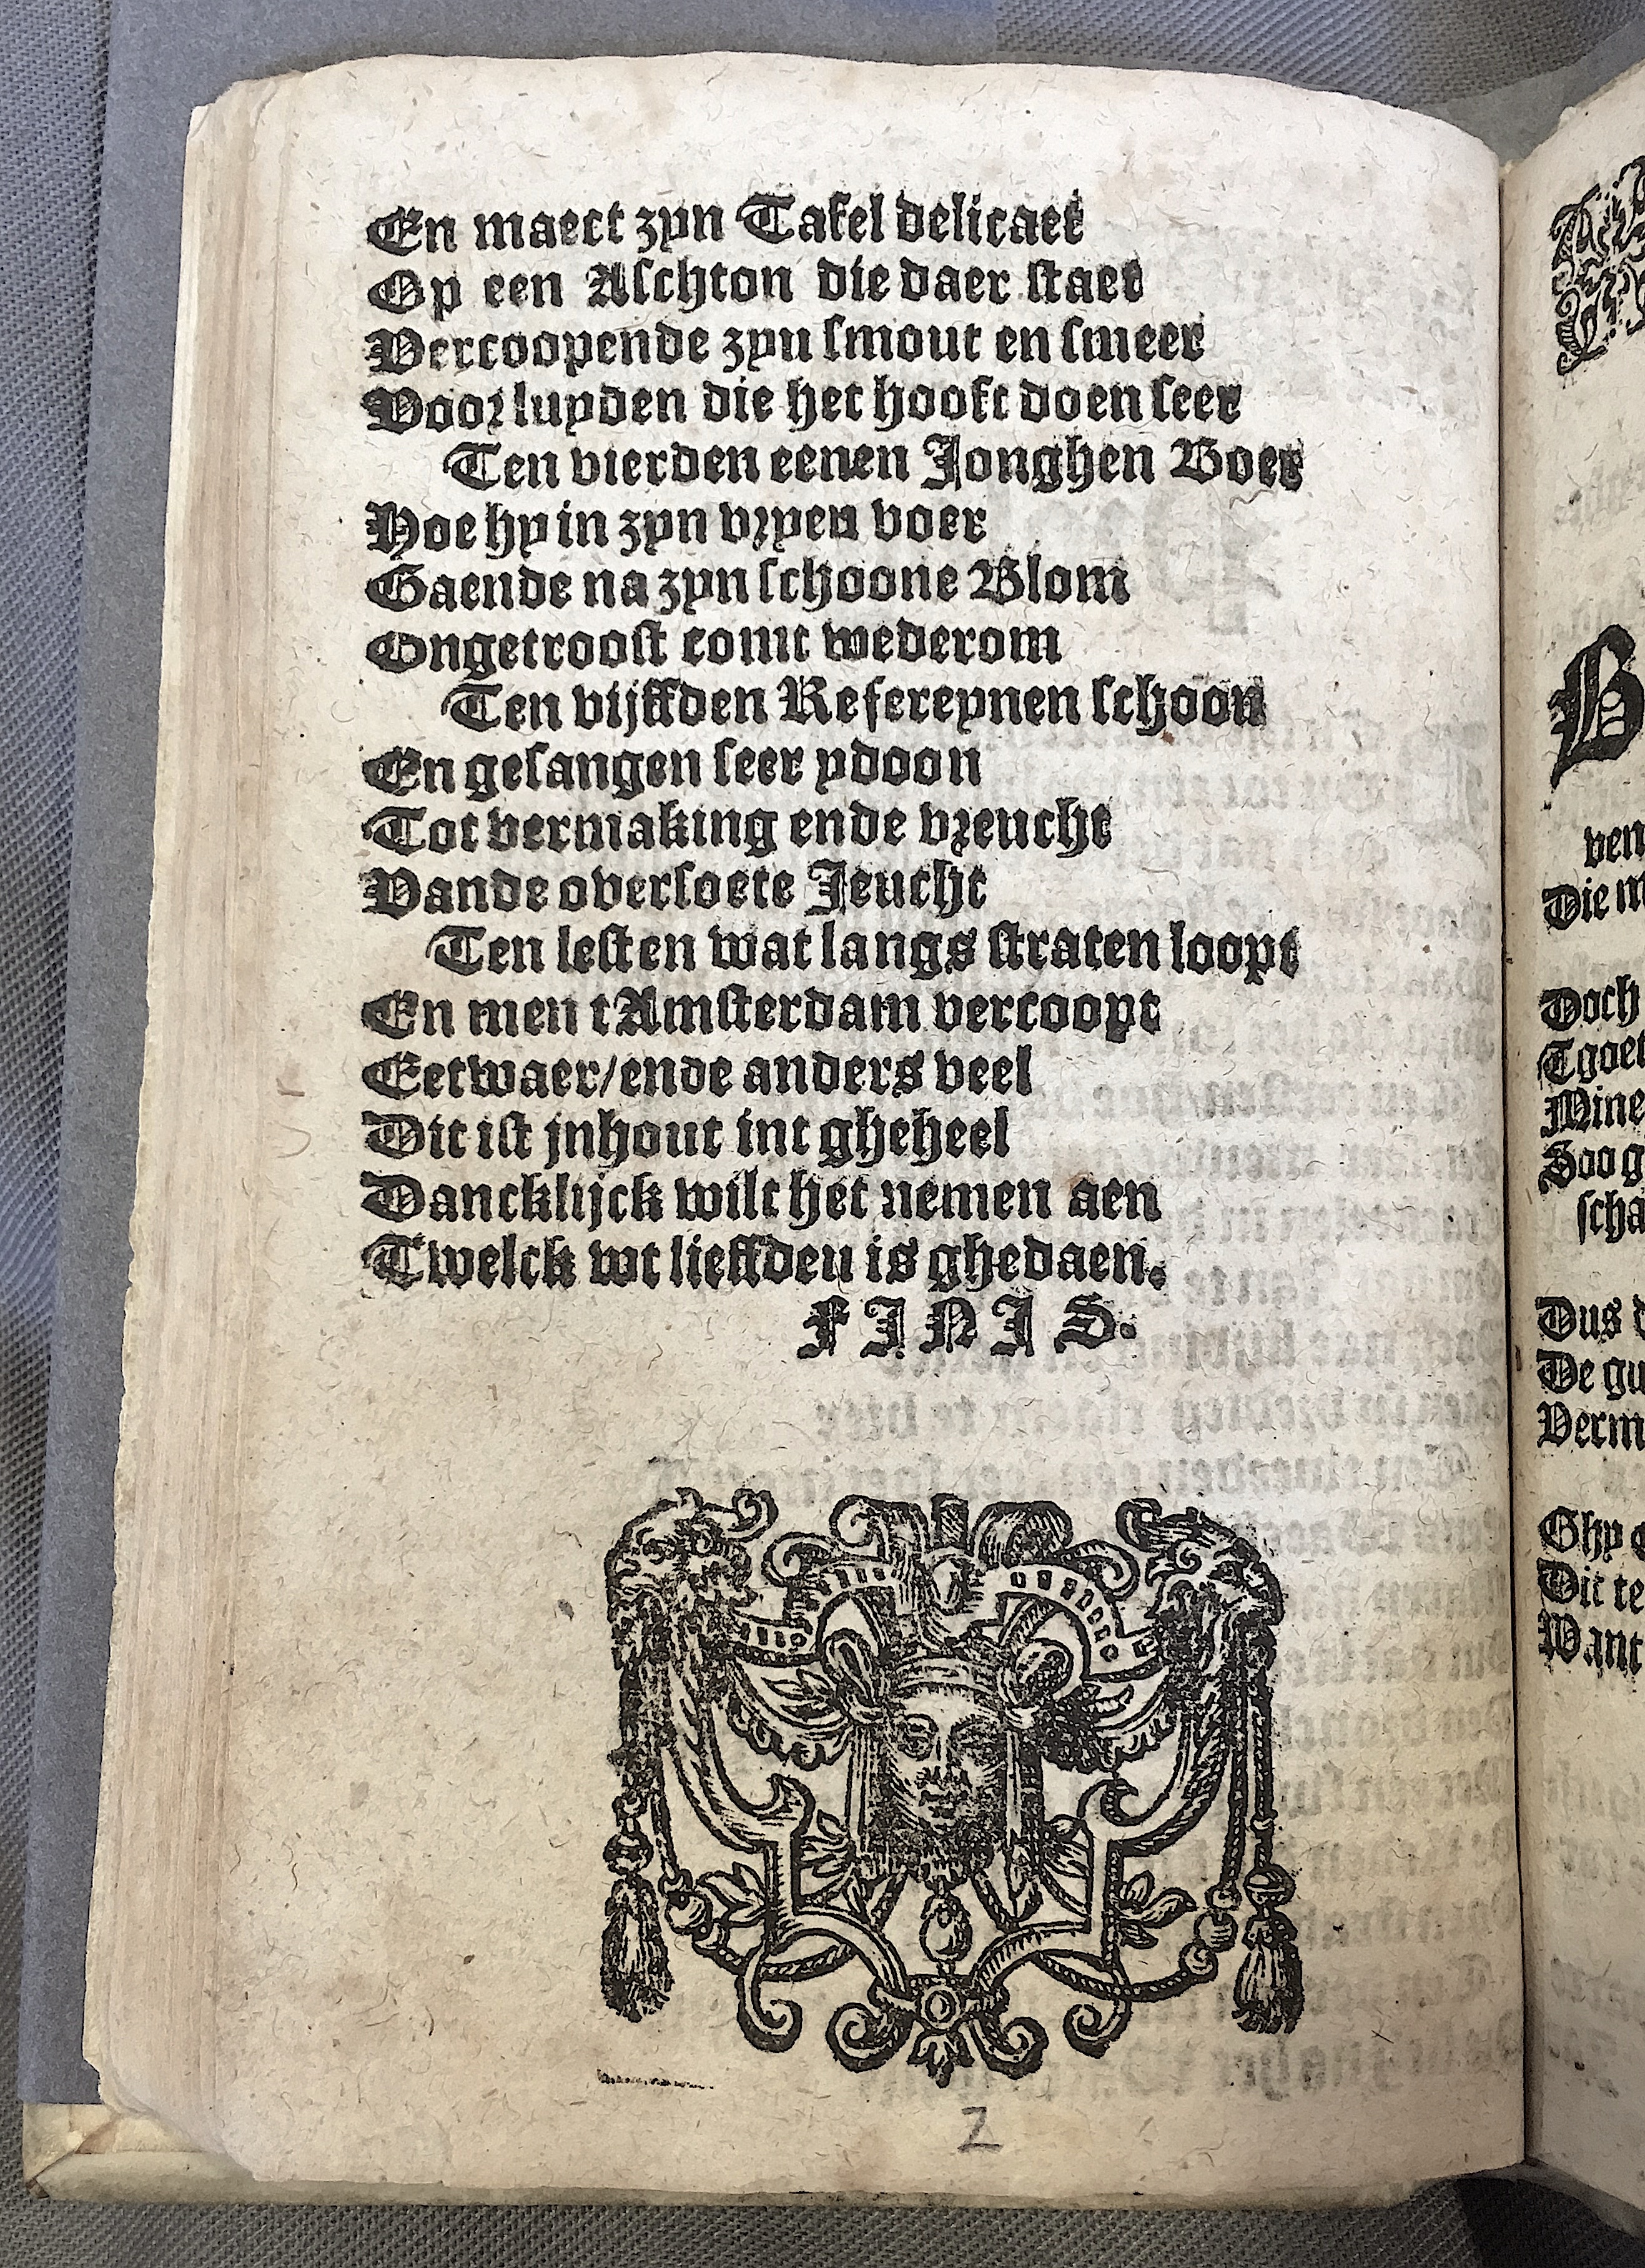 En maect zyn Tafel delicaet
Op een Aschton die daer staet
Vercoopende zyn smout en smeer
Voor luyden die het hooft doen seer
Ten vierden eenen Jonghen Boer
Hoe hy in zyn vryen voer
Gaende na zyn schoone Blom
Ongetroost comt wederom
Ten vijffden Refereynen schoon
En gesangen seer ydoon
Tot vermaking ende vreucht
Vande oversoete Jeucht
Ten lesten wat langs straten loopt
En men tAmsterdam vercoopt
Eetwaer/ende anders veel
Dit ist jnhout int gheheel
Dancklijck wilt het nemen aen
Twelck wt lieffden is ghedaen.
FINIS.
2
B
ven
Die
Doch
Tgoet
Mine
Soo
scha
Dus
De
Verm
Ghy
Dit te
Want